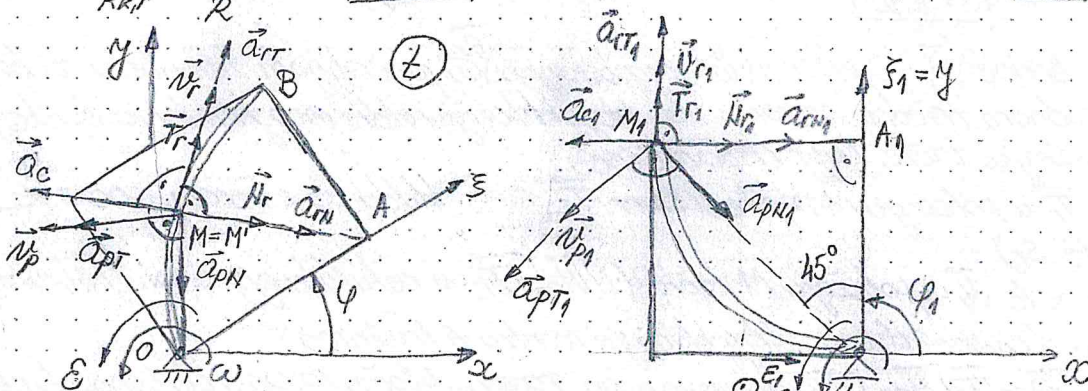 R
y
a⃗rT
t
v⃗r
B
T⃗r
a⃗c
N⃗r
a⃗rN
A
ξ
v⃗p
a⃗pT
M=M'
a⃗pN
φ
ε
O
ω
x
a⃗rT1
v⃗r1
ξ1=y
T⃗r1
a⃗c1
M1
N⃗r1
a⃗rN1
A1
a⃗pN1
v⃗p1
a⃗pT1
45°
φ1
ε⃗1
x